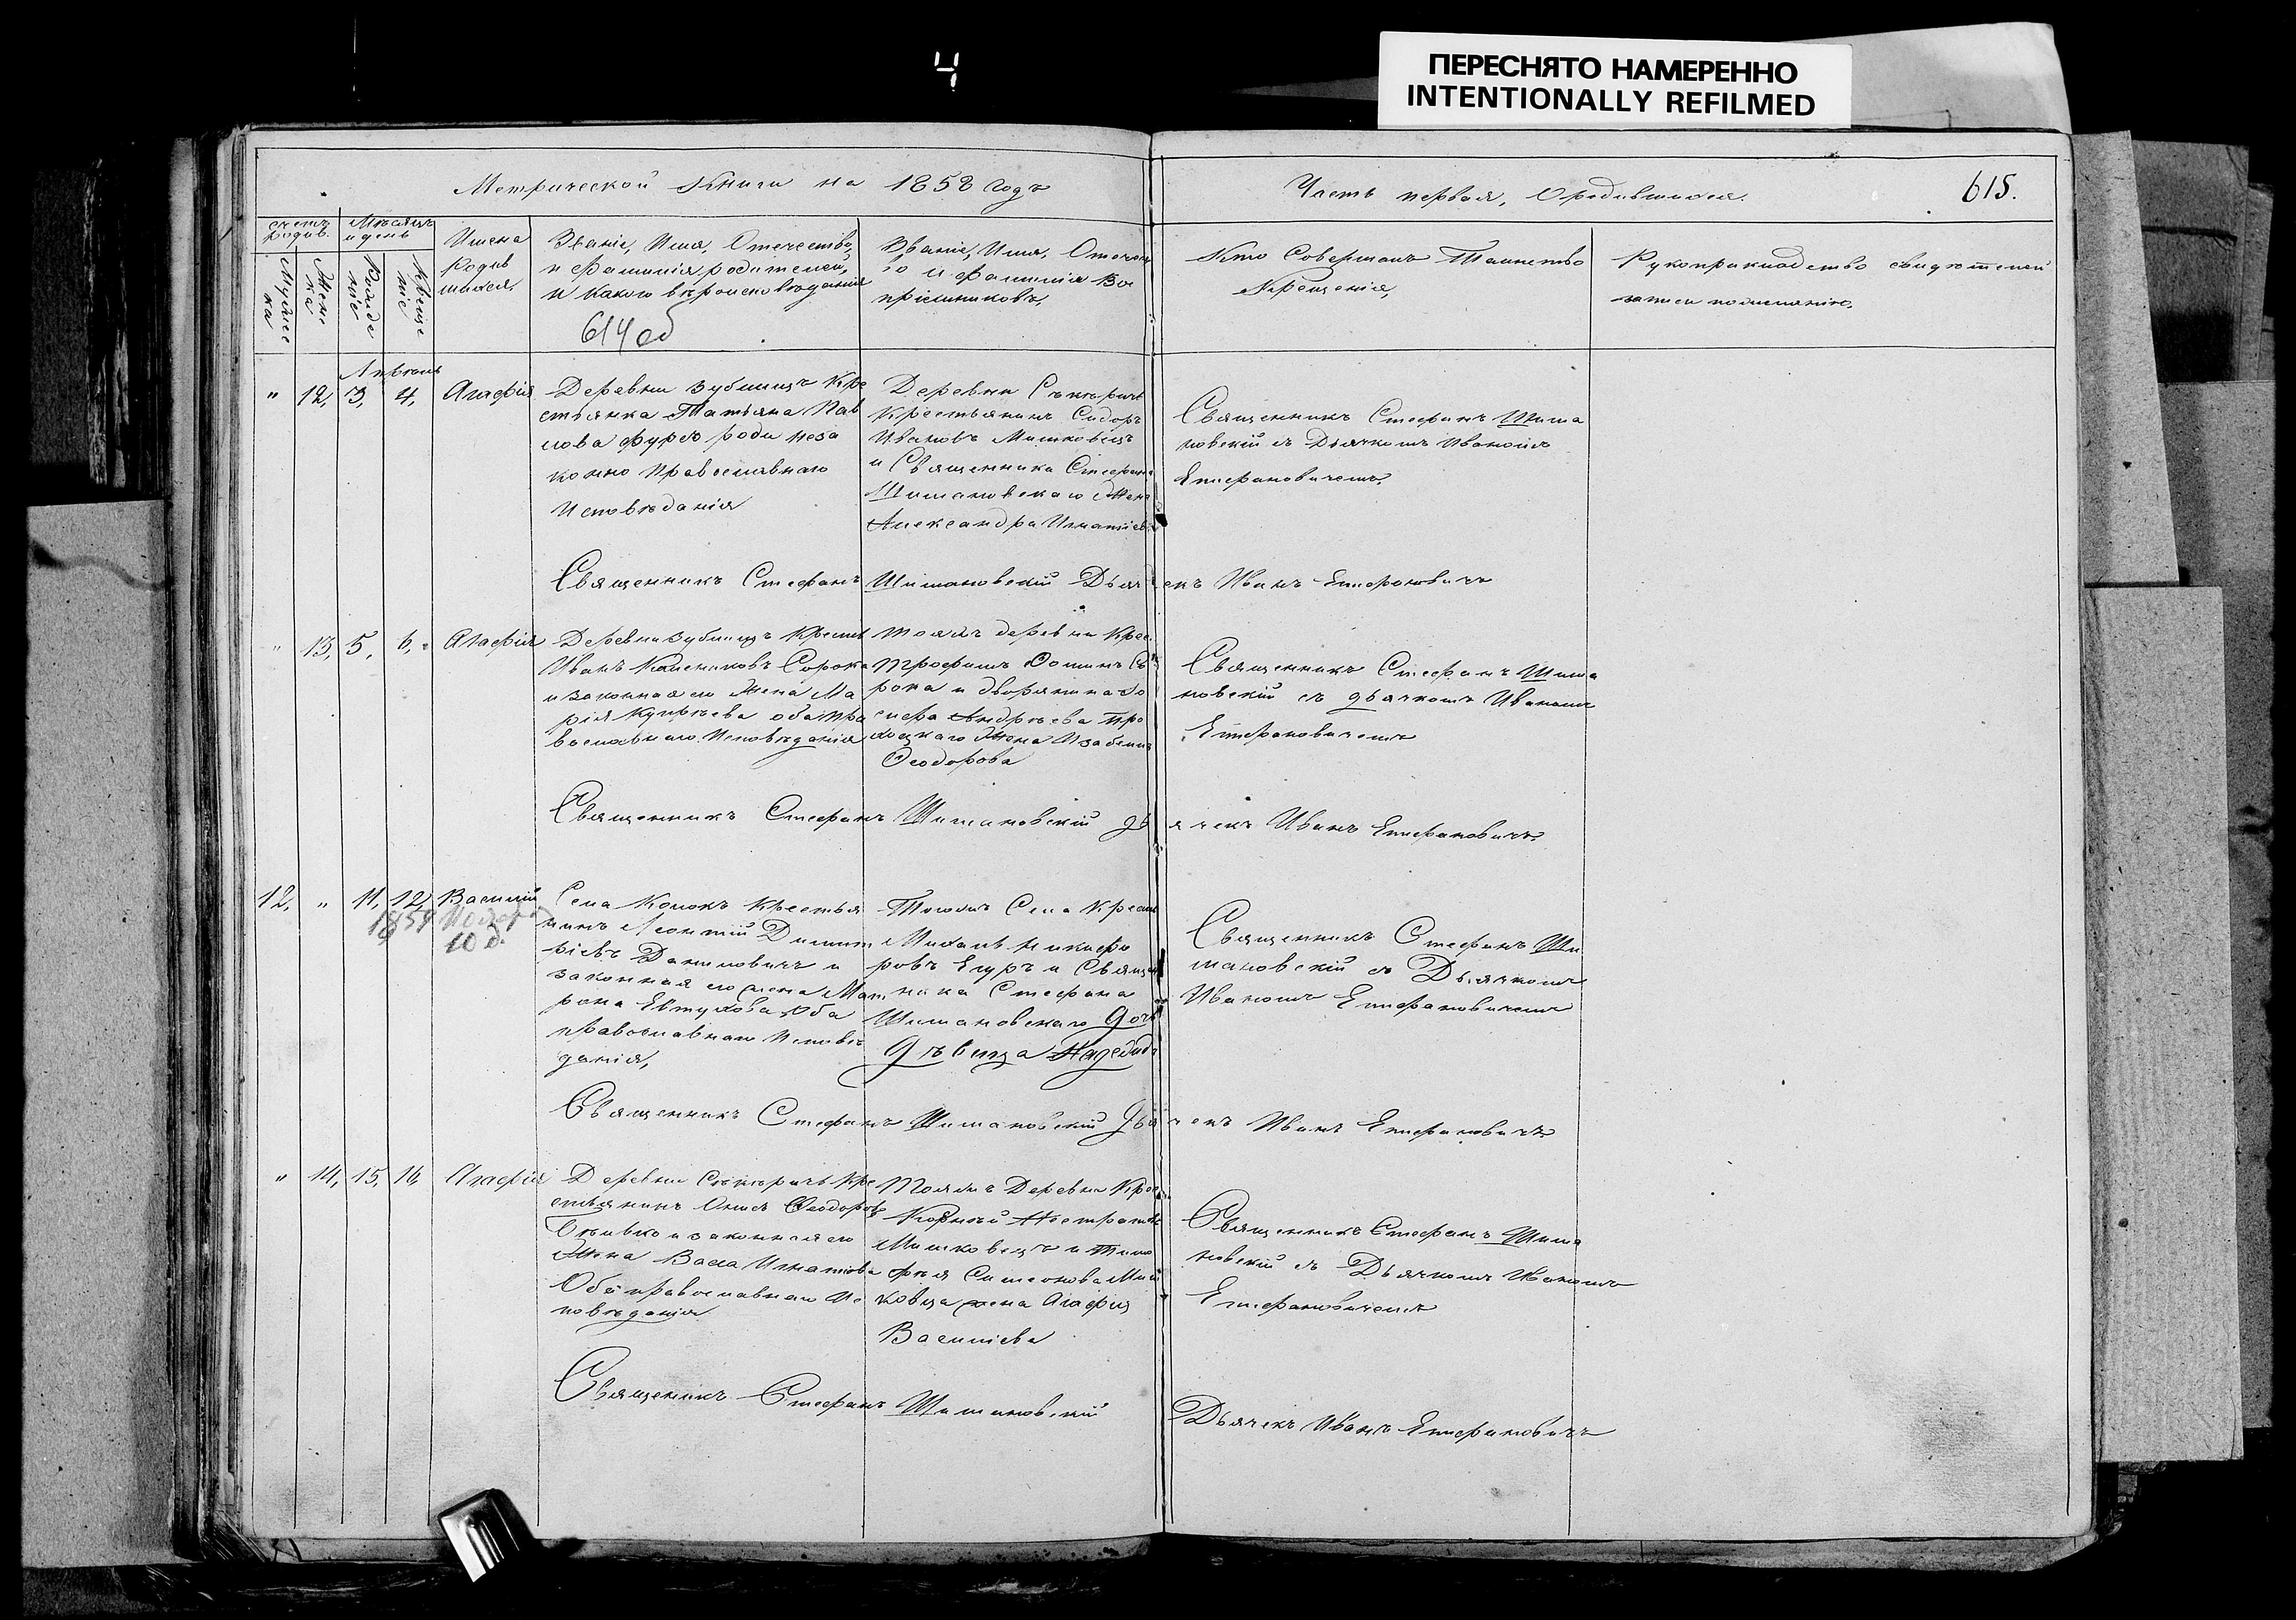 4
ПЕРЕСНЯТО НАМЕРЕННО
INTENTIONALLY REFILMED
Метрической Книги на 1858 годъ
Часть первая, О родившихся.
615.
счетъ родив.
Мѣсяцъ и день
Мужес ка
Женс ка
Рожде ніе
Креще ніе
Имена
Родив
шихся.
Званіе, Имя, Отечество,
и Фамилія родителей,
и какого вѣроисповѣданія
614 об
Званіе, Имя, Отечест
во и Фамилія Вос
пріемниковъ,
Кто Совершалъ Таинство
Крещенія,
Рукоприкладство свидѣтелей
записи по желанію,
Апрѣль
" 12, 3, 4, Агафія
Деревни Зубмицъ Кре
стьянка Татьяна Пав
лова Фурсъ роди неза
конно Православнаго
Исповѣданія
Деревни Сѣкѣричъ
Крестьянинъ Сидоръ
Ивановъ Мишковецъ
и Священника Стефана
Шимановскаго Жена
Александра Игнатіев
Священникъ Стефанъ Шима
новскій съ Дьячкомъ Иваномъ
Епифановичемъ,
Священникъ Стефанъ Шимановскій Дьячекъ Иванъ Епифановичъ
" 13, 5, 6, Агафія
Деревни Зубмицъ Крестья
Иванъ Калениковъ Сорока
и законная его Жена Ма
рія Купрѣева оба Пра
вославнаго Исповѣданія
Тояжъ деревни Крес
Трофимъ Фоминъ Со
рока и дворянина Іо
сифа Андрѣева Про
жена Изабелла
Ѳеодорова
Священникъ Стефанъ Шима
новскій съ дьячкомъ Иваномъ
Епифановичемъ
Священникъ Стефанъ Шимановскій дьячекъ Иванъ Епифановичъ
12, " 11, 12, Василій
1859
10 д.
Села Колокъ Крестья
нинъ Леонтій Димит
ріевъ Даниловичъ и
законная его жена Мат
рона Евтухова Оба
православнаго Исповѣ
данія,
Тогожъ Села Крест
Михаилъ Никифо
ровъ Егуръ и Священ
ника Стефана
Шимановскаго дочь
дѣвица Надежда
Священникъ Стефанъ Ши
мановскій съ Дьячкомъ
Иваномъ Епифановичемъ
Священникъ Стефанъ Шимановскій дьячекъ Иванъ Епифановичъ
" 14, 15, 16, Агафія
Деревни Сѣкѣричъ Кре
стьянинъ Онисъ Ѳеодоровъ
Сѣивко и законная его
Жена Васса Игнатова
Оба православнаго Ис
повѣданія
Тояжъ Деревни Крес
Корнѣй
Мишковецъ и Тимо
фѣя Симеонова Миш
ковца жена Агафія
Василіева
Священникъ Стефанъ Шима
новскій съ Дьячкомъ Иваномъ
Епифановичемъ
Священикъ Стефанъ Шимановскій Дьячекъ Иванъ Епифановичъ